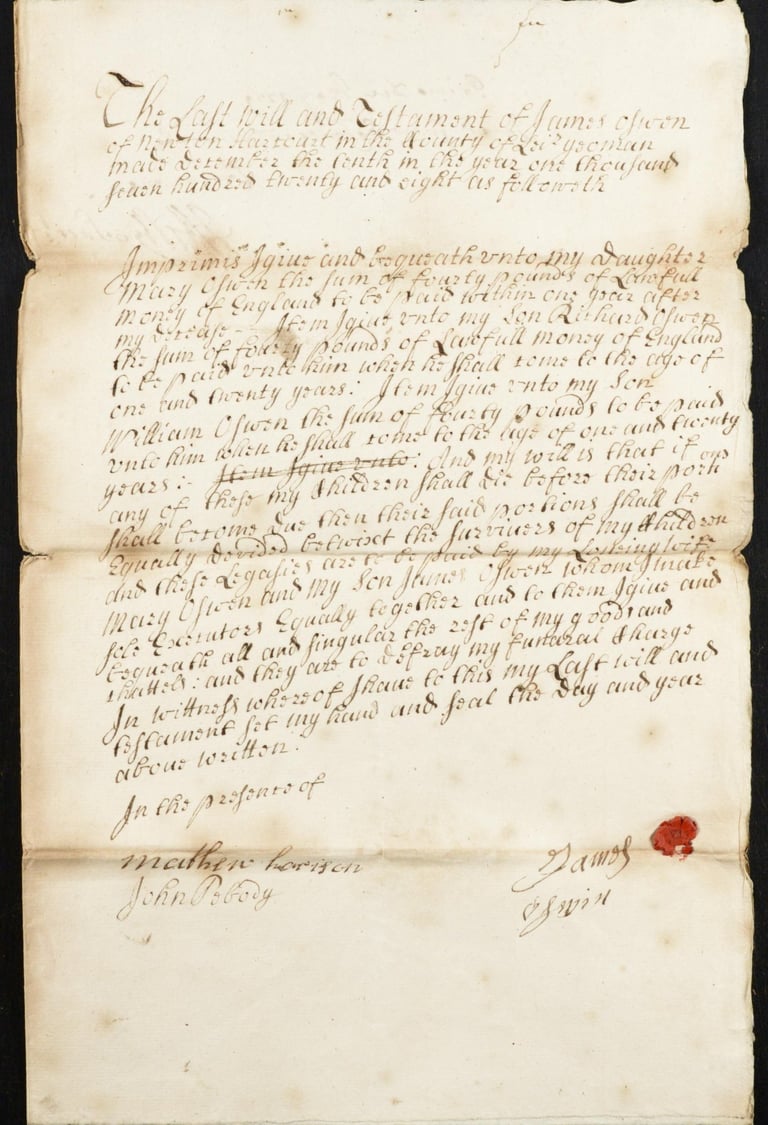 The Last will and Testament of James Oswen
of Newton Harcourt in the County of Leir yeoman
made December the tenth in the year one thousand
seven hundred twenty and eight as followeth
Imprimis I giue and bequeath vnto my Daughter
Mary Oswen the sum of fourty pounds of Lawfull
money of England to be paid within one year after
my decease - Item I giue vnto my Son Richard Oswen
the sum of fourty pounds of Lawfull money of England
to be paid vnto him when he shall come to the age of
one and twenty years: Item I giue vnto my Son
William Oswen the sum of fourty pounds to be paid
vnto him when he shall come to the age of one and twenty
years:- Item I giue vnto: And my will is that if
any of these my Children shall die before their portions
shall become due then their said portions shall be
Equally devided betwixt the survivers of my Children
and these Legasies are to be paid by my Loveing wife
Mary Oswen and my Son James Oswen whome I make
sole Executors Equally together and to them I giue and
bequeath all and singular the rest of my goods and
chattels: and they are to defray my funaral Charge
In wittness whereof I haue to this my Last will and
testament set my hand and seal the Day and year
aboue written:
In the presence of
mathew harison
John Pebody
James
oswin